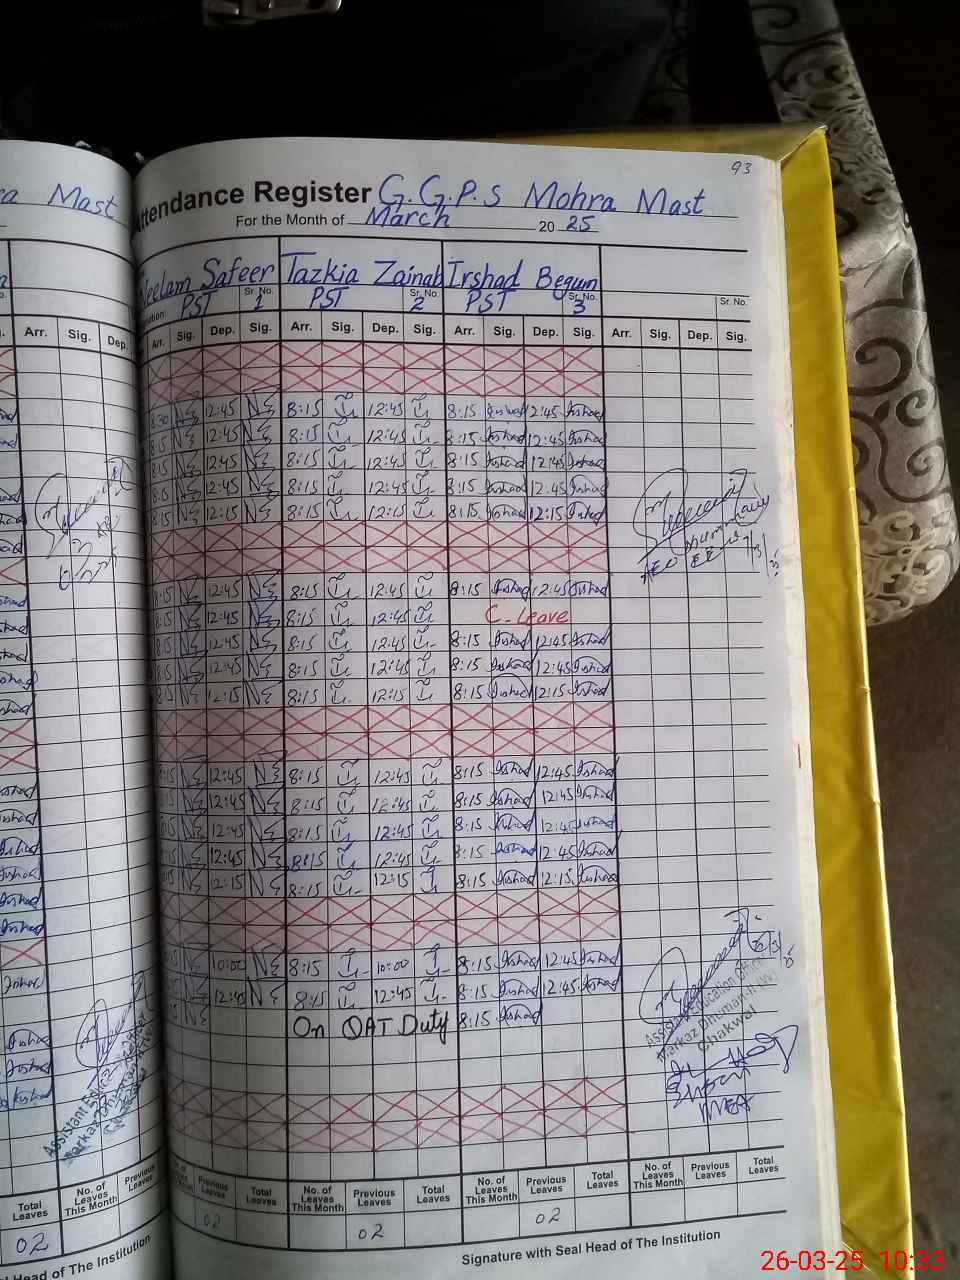 93
Attendance Register G.G.P.S Mohra Mast
For the Month of March 20 25
Neelam Safeer Tazkia Zainab Irshad Begum
PST Sr. No. 1 PST Sr. No. 2 PST Sr. No. 3 Sr. No.
Arr. Sig. Dep. Sig. Arr. Sig. Dep. Sig. Arr. Sig. Dep. Sig. Arr. Sig. Dep. Sig.
8:30 12:45 8:15 12:45 8:15 Irshad 12:45 Irshad
8:15 12:45 8:15 12:45 8:15 Irshad 12:45 Irshad
8:15 12:45 8:15 12:45 8:15 Irshad 12:45 Irshad
8:15 12:45 8:15 12:45 8:15 Irshad 12:45 Irshad
8:15 12:15 8:15 12:15 8:15 Irshad 12:15 Irshad
8:15 12:45 8:15 12:45 8:15 Irshad 12:45 Irshad
8:15 12:45 8:15 12:45 C-Leave
8:15 12:45 8:15 12:45 8:15 Irshad 12:45 Irshad
8:15 12:45 8:15 12:45 8:15 Irshad 12:45 Irshad
8:15 12:15 8:15 12:15 8:15 Irshad 12:15 Irshad
8:15 12:45 8:15 12:45 8:15 Irshad 12:45 Irshad
8:15 12:45 8:15 12:45 8:15 Irshad 12:45 Irshad
8:15 12:45 8:15 12:45 8:15 Irshad 12:45 Irshad
8:15 12:45 8:15 12:45 8:15 Irshad 12:45 Irshad
8:15 12:15 8:15 12:15 8:15 Irshad 12:15 Irshad
10:00 8:15 10:00 8:15 Irshad 12:45 Irshad
12:45 8:15 12:45 8:15 Irshad 12:45 Irshad
On QAT Duty 8:15 Irshad
AEO
Assistant Education Officer
Markaz Dhuman-II (W)
Chakwal
Previous Leaves Total Leaves No. of Leaves This Month Previous Leaves Total Leaves No. of Leaves This Month Previous Leaves Total Leaves No. of Leaves This Month Previous Leaves Total Leaves
02 02 02
Signature with Seal Head of The Institution
Mast
Arr. Sig. Dep.
Total Leaves No. of Leaves This Month Previous Leaves
02
Head of The Institution
26-03-25 10:33